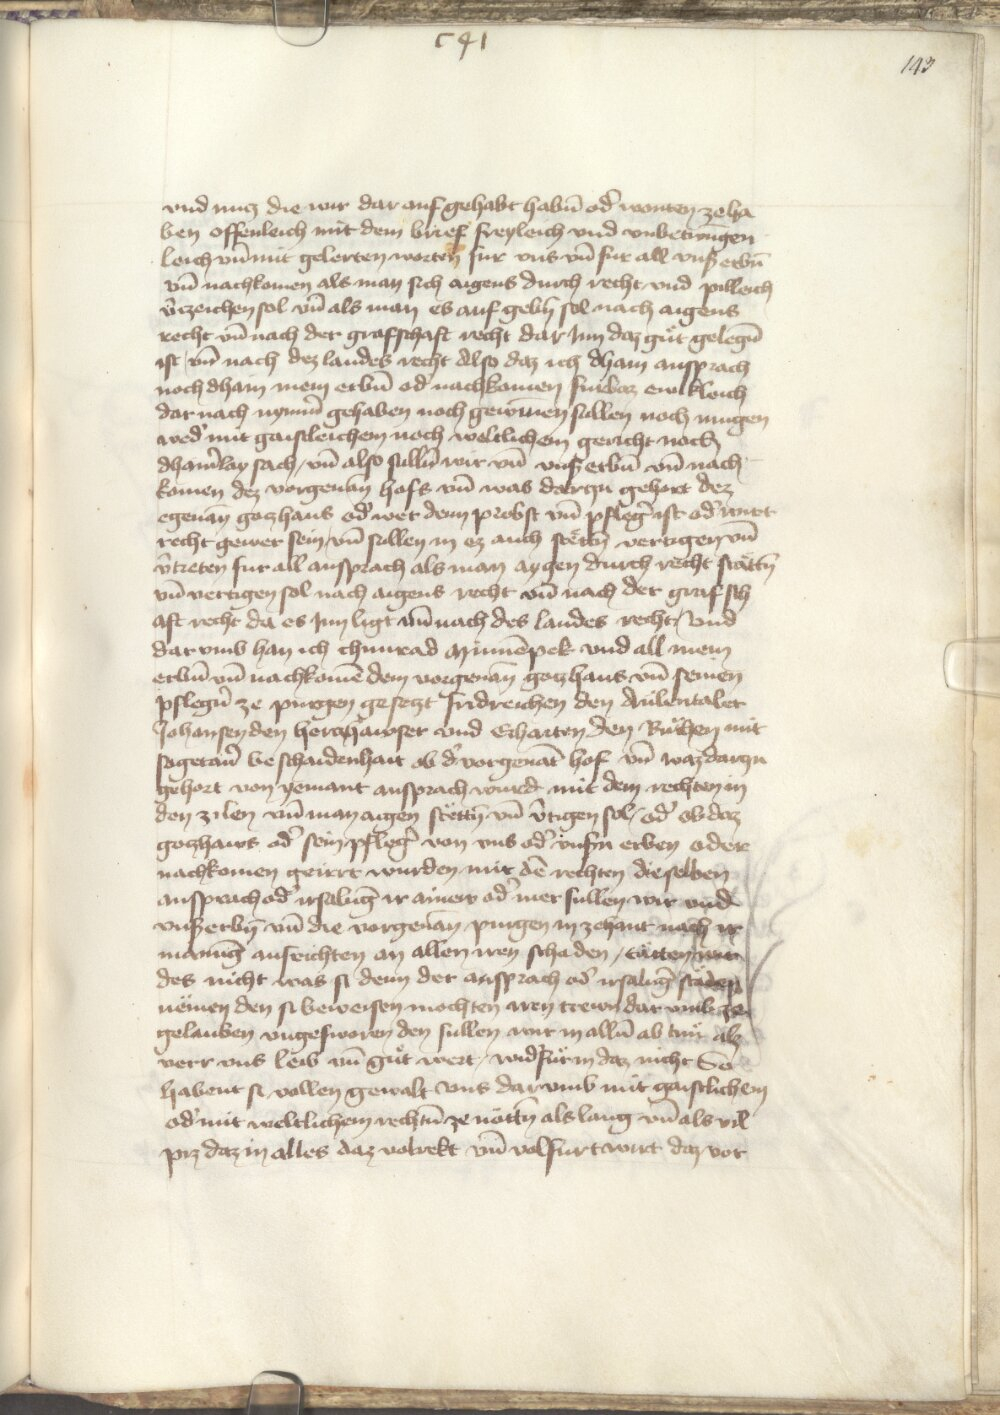 c41
143
vnd nucz die wir dar auf gehabt habn̄ od̓ wonten ze ha
ben offenleich mit dem brief freyleich vnd vnbetwungen
leich vn̄ mit gelerten worten fur vns vn̄ fur all vnß erbn̄
vn̄ nachkomen als man sich aigens durch recht vnd pilleich
v̓czeichen sol vn̄ als man es auf gebn̄ sol nach aigens
recht vn̄ nach der grafschaft recht dar Inn daz guͤt gelegn̄
ist vn̄ nach dez landes recht Also daz ich dham ansprach
noch dham mein erbn̄ od̓ nachkomen furbaz ewikleich
dar nach nymm̓ gehaben noch gewinnen sullen noch mugen
wed̓ mit gaistleichem noch weltlichem gericht noch
dham̓lay sach / vn̄ also sulln̄ wir vn̄ vnß erbn̄ vn̄ nach
komen dez vorgenan̄ hofs vn̄ was darczu gehort dez
egenan̄ goczhaus od̓ wer denn probst vn̄ pfleg̓ ist od̓ wirt
recht gewer sein vn̄ sullen in ez auch stëttn̄ vertigen vn̄
v̓treten fur all ansprach als man aygen durch recht stättn̄
vn̄ vertigen sol nach aigens recht vn̄ nach der graf sch
aft recht da es Inn ligt vn̄ nach des landes recht / Vnd
dar vmb han ich chunrad Minnēpek vnd all mein
erbn̄ vn̄ nachkomē dem vorgenan̄ goczhaus vn̄ seinen
pflegn̓ ze purgen gesetzt fridreichen den Aulentaler
Johansen den herczhawser vnd Erharten den Ruͤhen mit
sogetan̓ beschaidenhait ob d̓ vorgenāt hof vn̄ waz darzu
gehort von yemant ansprach wurd mit dem rechten in
den zilen vn̄ man aigen stëttn̄ vn̄ v̓tigen sol / od̓ ob daz
goczhaws od̓ sein pfleg̓ von vns od̓ vnsn̓ erben oder
nachkomen geirrt wurden mit dē rechten dieselben
ansprach od̓ irsalunḡ ir ainew od̓ mer sullen wir vnd
vnß erbn̄ vn̄ die vorgenan̄ purgen in zehant nach ir
manunḡ ausrichten an allen iren schaden / Tätten wir
des nicht was si denn der ansprach od̓ irsalunḡ schaden
nëmen den si beweisen mochten iren trewn dar vmb ze
gelauben vngesworen den sullen wir in alln̄ ab tuͤn alz
verr vns leib vn̄ guͤt wert / wid̓fuͤr in daz nicht So
habent si vollen gewalt vns dar vmb mit gaistlichem
od̓ mit weltlichem rechtn̄ ze nöttn̄ als lang vn̄ als vil
picz daz in alles daz volrekt vn̄ volfurt wirt daz vor